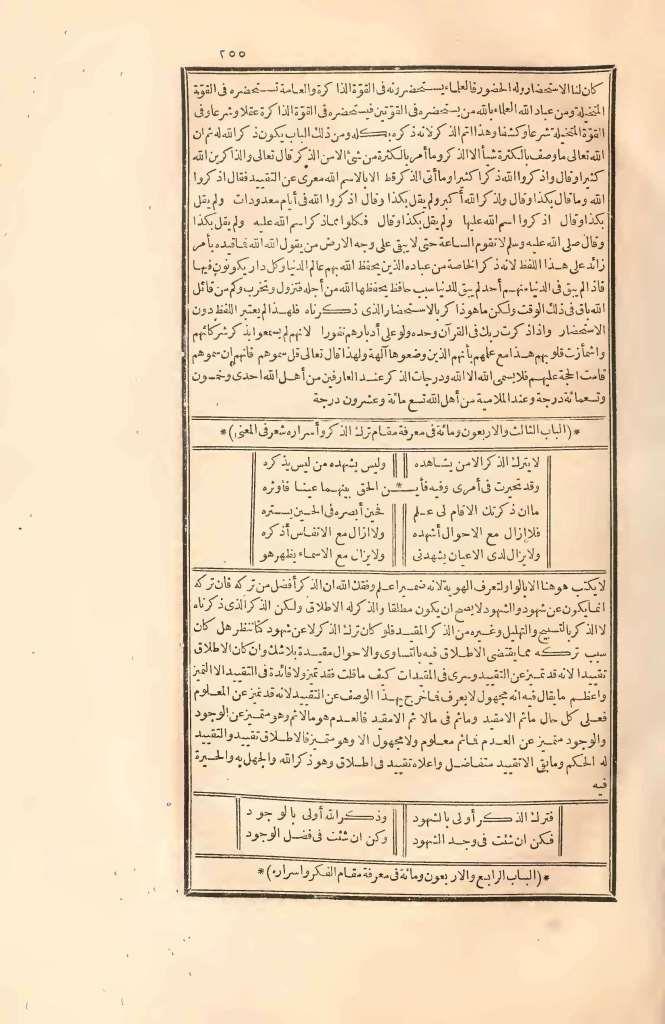 ٢٥٥
كان لنا الاستحضار وله الحضور فالعلماء يستحضرونه في القوّة الذاكرة والعامة تستحضره في القوّة
المتخيلة ومن عباد الله العلماء بالله من يستحضره في القوّتين فيستحضره في القوّة الذاكرة عقلا وشرعا وفي
القوّة المتخيلة شرعا وكشفا وهذا أتم الذكر لانه ذكره بكله ومن ذلك الباب يكون ذكر الله له ثم ان
الله تعالى ما وصف بالكثرة شيأ الا الذكر وما أمر بالكثرة من شئ الا من الذكر قال تعالى والذاكرين الله
كثيرا وقال واذكروا الله ذكرا كثيرا وما أتى الذكر قط الا بالاسم الله معرّى عن التقييد فقال اذكروا
الله وما قال بكذا وقال ولذكر الله أكبر ولم يقل بكذا وقال اذكروا الله في أيام معدودات ولم يقل
بكذا وقال اذكروا اسم الله عليها ولم يقل بكذا وقال فكلوا مماذكر اسم الله عليه ولم يقل بكذا
وقال صلى الله عليه وسلم لا تقوم الساعة حتى لا يبقى على وجه الارض من يقول الله الله فما قيده بأمر
زائد على هذا اللفظ لانه ذكر الخاصة من عباده الذين يحفظ الله بهم عالم الدنيا وكل دار يكونون فيها
فاذا لم يبق في الدنيا منهم أحد لم يبق للدنيا سبب حافظ يحفظها الله من أجله فتزول وتخرب وكم من قائل
الله باق في ذلك الوقت ولكن ما هو ذاكر بالاستحضار الذي ذكرناه فلهذا لم يعتبر اللفظ دون
الاستحضار واذا ذكرت ربك في القرآن وحده ولوا على أدبارهم نفورا لانهم لم يسمعوا بذكر شركائهم
واشمأزت قلوبهم هذا مع علمهم بأنهم الذين وضعوها آلهة ولهذا قال تعالى قل سموهم فانهم ان سموهم
قامت الحجة عليهم فلا يسمى الله الا الله ودرجات الذكر عند العارفين من أهل الله احدى وخمسون
وتسعمائة درجة وعند الملامية من أهل الله تسع مائة وعشرون درجة
*(الباب الثالث والاربعون ومائة في معرفة مقام ترك الذكر وأسراره شعر في المعنى)*
لا يترك الذكر الا من يشاهده وليس يشهده من ليس يذكره
وقد تحيرت في أمري وفيه فأيـ * ـن الحق بينهما عينا فأوثره
ما ان ذكرتك الا قام لي علم فحين أبصره في الحين يستره
فلا ازال مع الاحوال أشهده ولا ازال مع الانفاس أذكره
ولا يزال لدى الاعيان يشهدني ولا يزال مع الاسماء يظهر هو
لا يكتب هو هنا الا بالواو لتعرف الهوية لانه ضمير اعلم وفقك الله ان الذكر أفضل من تركه فان تركه
انما يكون عن شهود والشهود لا يصح ان يكون مطلقا والذكر له الاطلاق ولكن الذكر الذي ذكرناه
لا الذكر بالتسبيح والتهليل وغيره من الذكر المقيد فلو كان ترك الذكر لا عن شهود كنا ننظر هل كان
سبب تركه مما يقتضى الاطلاق فيه بالتساوى والاحوال مقيدة بلا شك وان كان الاطلاق
تقييدا لانه قد تميز عن التقييد وسرى في المقيدات كيف ما قلت فقد تميز ولا فائدة في التقييد الا التميز
واعظم ما يقال فيه انه مجهول لا يعرف فما خرج بهذا الوصف عن التقييد لانه قد تميز عن المعلوم
فعلى كل حال ما ثم الا مقيد وما ثم في مالا ثم الا مقيد فالعدم هو مالا ثم وهو متميز عن الوجود
والوجود متميز عن العدم فما ثم معلوم ولا مجهول الا وهو متميز فالاطلاق تقييد والتقييد
له الحكم وما بقى الا تقييد متفاضل واعلاه تقييد في اطلاق وهو ذكر الله والجهل به والحيرة
فيه
فترك الذكر أولى بالشهود وذكر الله أولى بالوجود
فكن ان شئت في وجد الشهود وكن ان شئت في فضل الوجود
*(الباب الرابع والاربعون ومائة في معرفة مقام الفكر واسراره)*